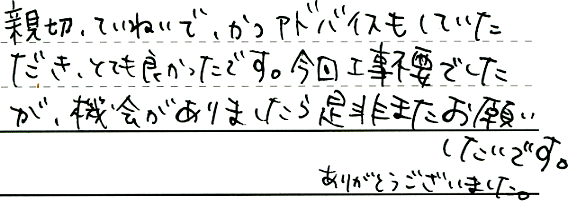 親切、ていねいで、かつアドバイスもしていた
だき、とても良かったです。今回工事不要でした
が、機会がありましたら是非またお願い
したいです。
ありがとうございました。